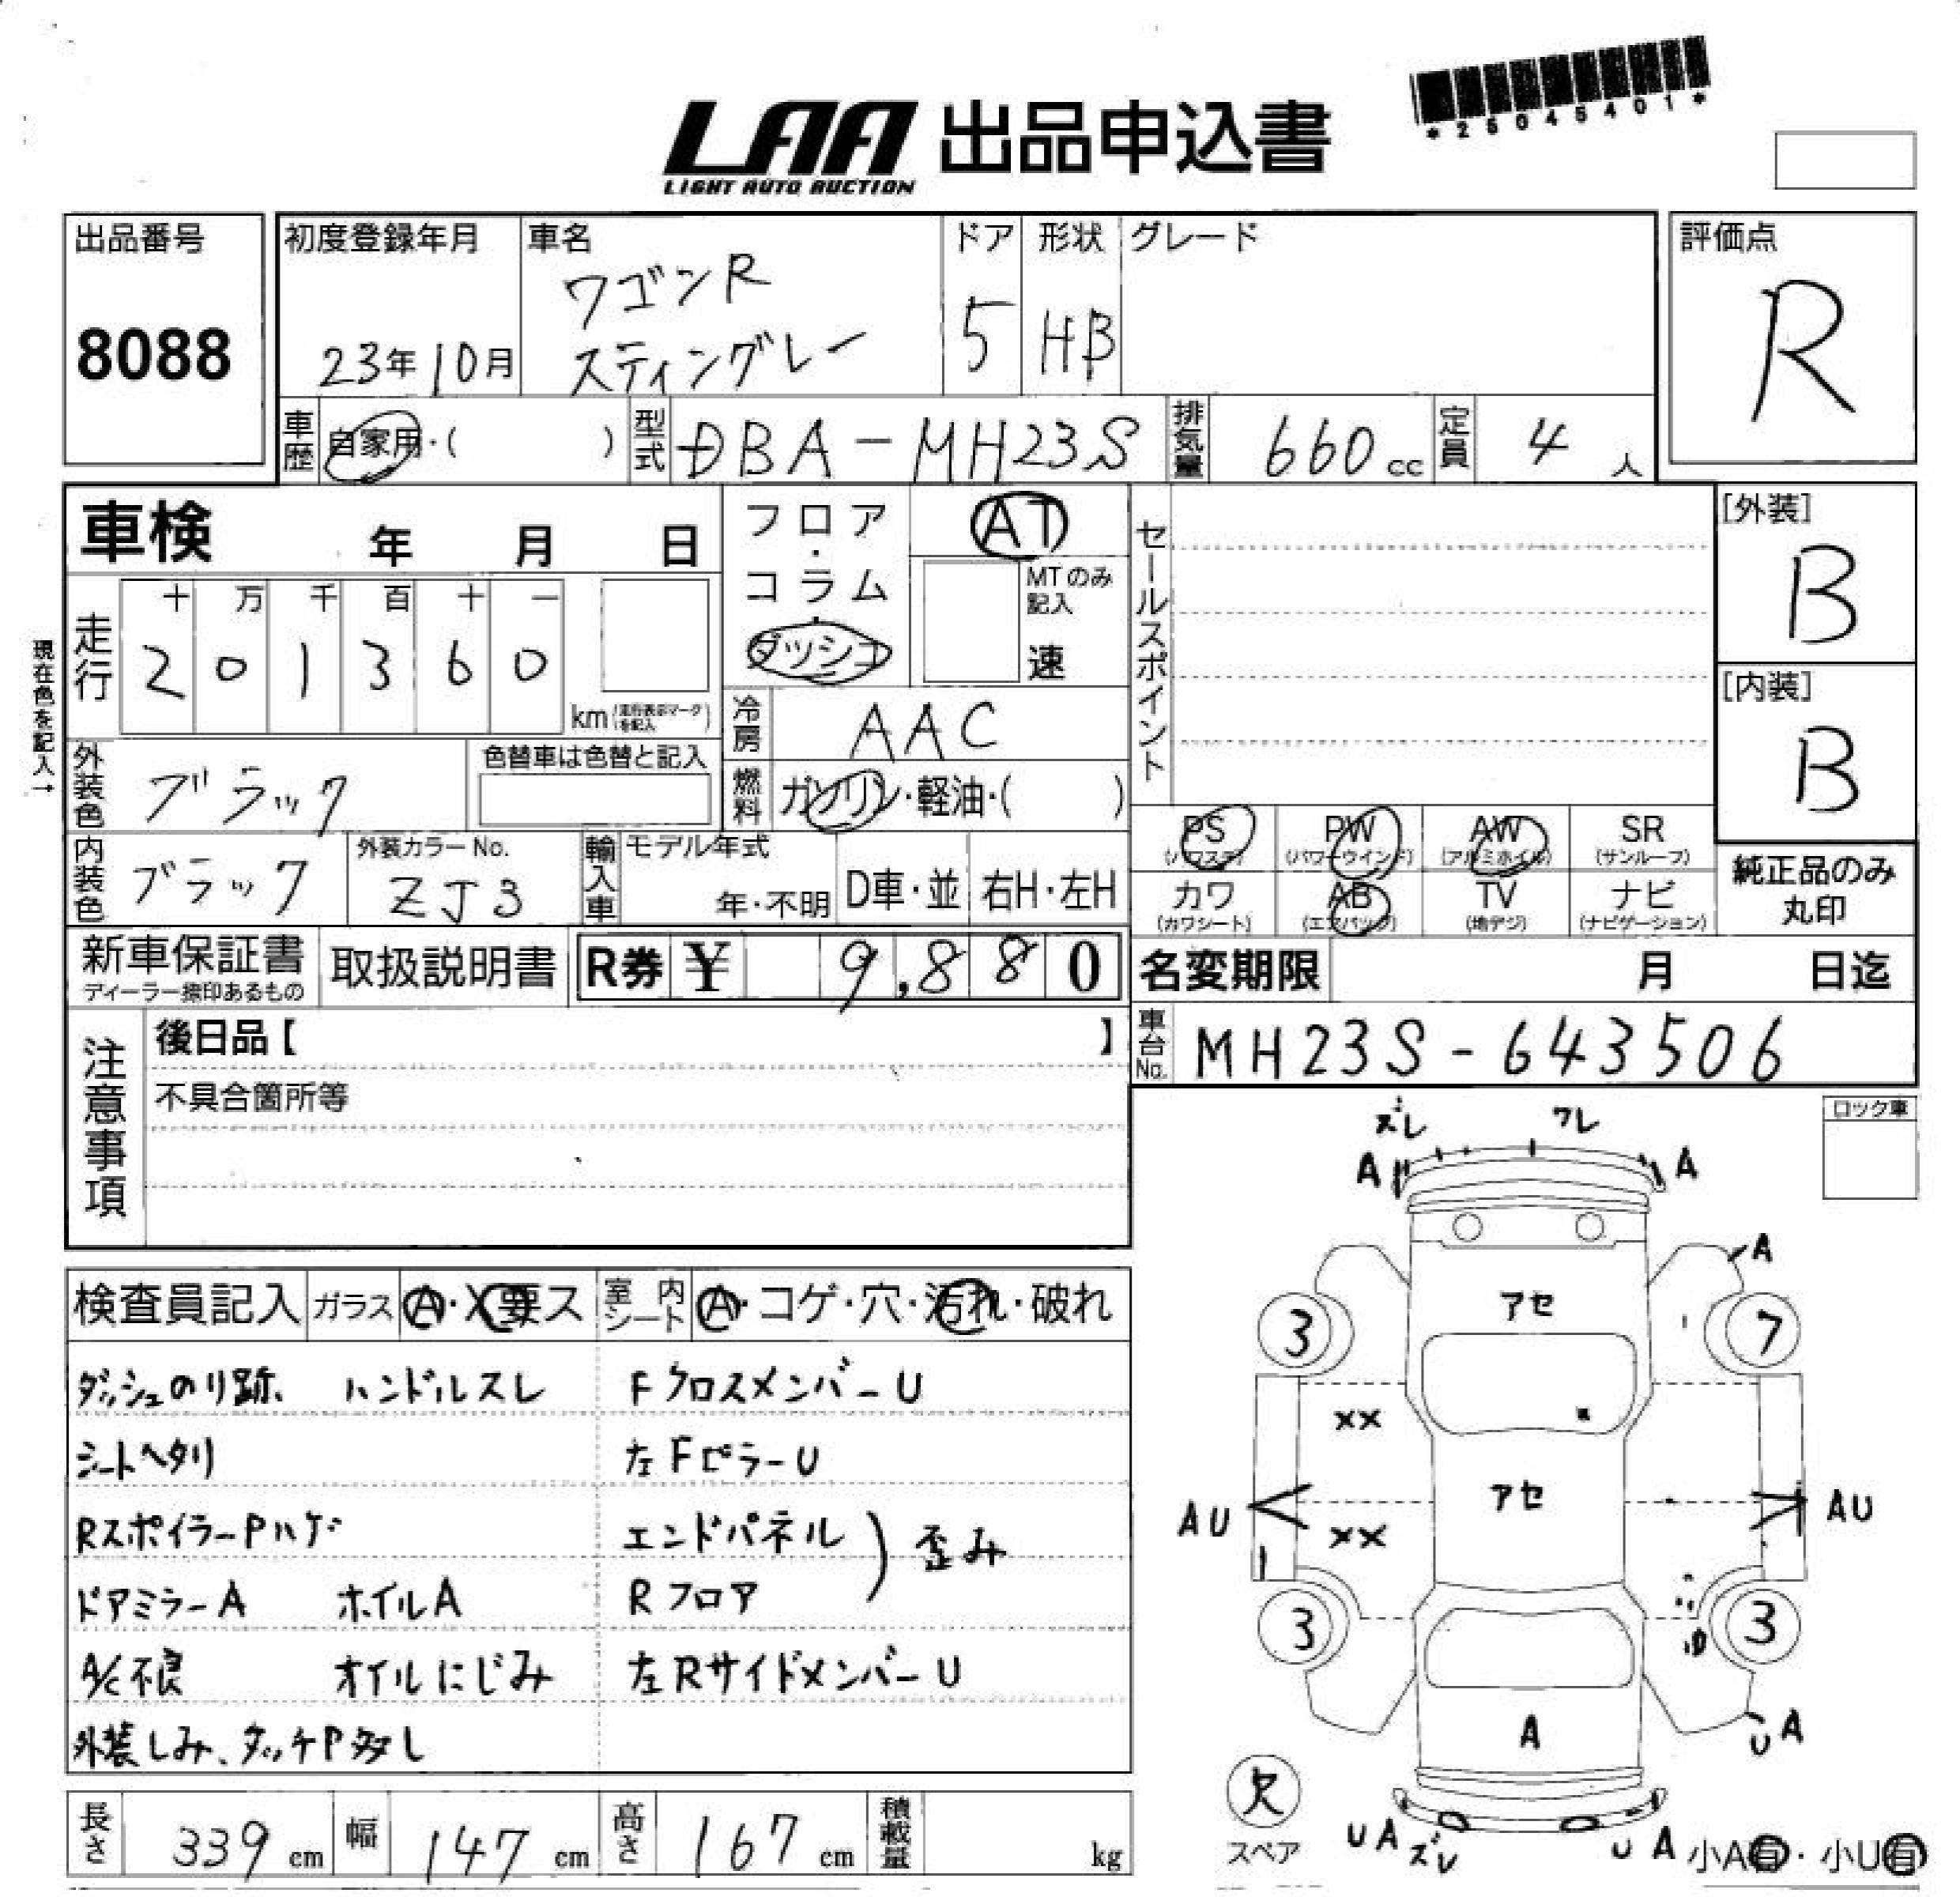 LAA 出品申込書
LIGHT AUTO AUCTION
*25045401*
出品番号
8088
初度登録年月
23年10月
車名
ワゴンR
スティングレー
ドア
5
形状
HB
グレード
評価点
R
車歴 自家用・( )
型式 DBA-MH23S
排気量 660cc
定員 4人
車検 年 月 日
フロア・コラム・ダッシュ
AT
MTのみ記入
速
セールスポイント
[外装]
B
[内装]
B
現在色を記入→
走行
十 万 千 百 十 一
2 0 1 3 6 0
km (走行表示マークを記入)
冷房 AAC
外装色 ブラック
色替車は色替と記入
燃料 ガソリン・軽油・( )
内装色 ブラック
外装カラーNo.
ZJ3
輸入車
モデル年式
年・不明
D車・並
右H・左H
PS (パワステ)
PW (パワーウインド)
AW (アルミホイル)
SR (サンルーフ)
カワ (カワシート)
AB (エアバッグ)
TV (地デジ)
ナビ (ナビゲーション)
純正品のみ
丸印
新車保証書
ディーラー捺印あるもの
取扱説明書
R券 ¥ 9,880
名変期限 月 日迄
注意事項
後日品【 】
不具合箇所等
車台No. MH23S-643506
ロック車
検査員記入
ガラス A・X・要ス
室内シート A・コゲ・穴・汚れ・破れ
ダッシュのり跡、 ハンドルスレ
シートヘタリ
RスポイラーPハゲ
ドアミラーA ホイルA
A/C不良 オイルにじみ
外装しみ、タッチP多し
FクロスメンバーU
左FピラーU
エンドパネル
Rフロア
) 歪み
左RサイドメンバーU
ズレ ワレ
A A
A
アセ
3 7
XX
アセ
AU AU
XX
3 3
A
U A
欠
スペア
UA ズレ
U A
小A有・小U有
長さ 339cm
幅 147cm
高さ 167cm
積載量 kg